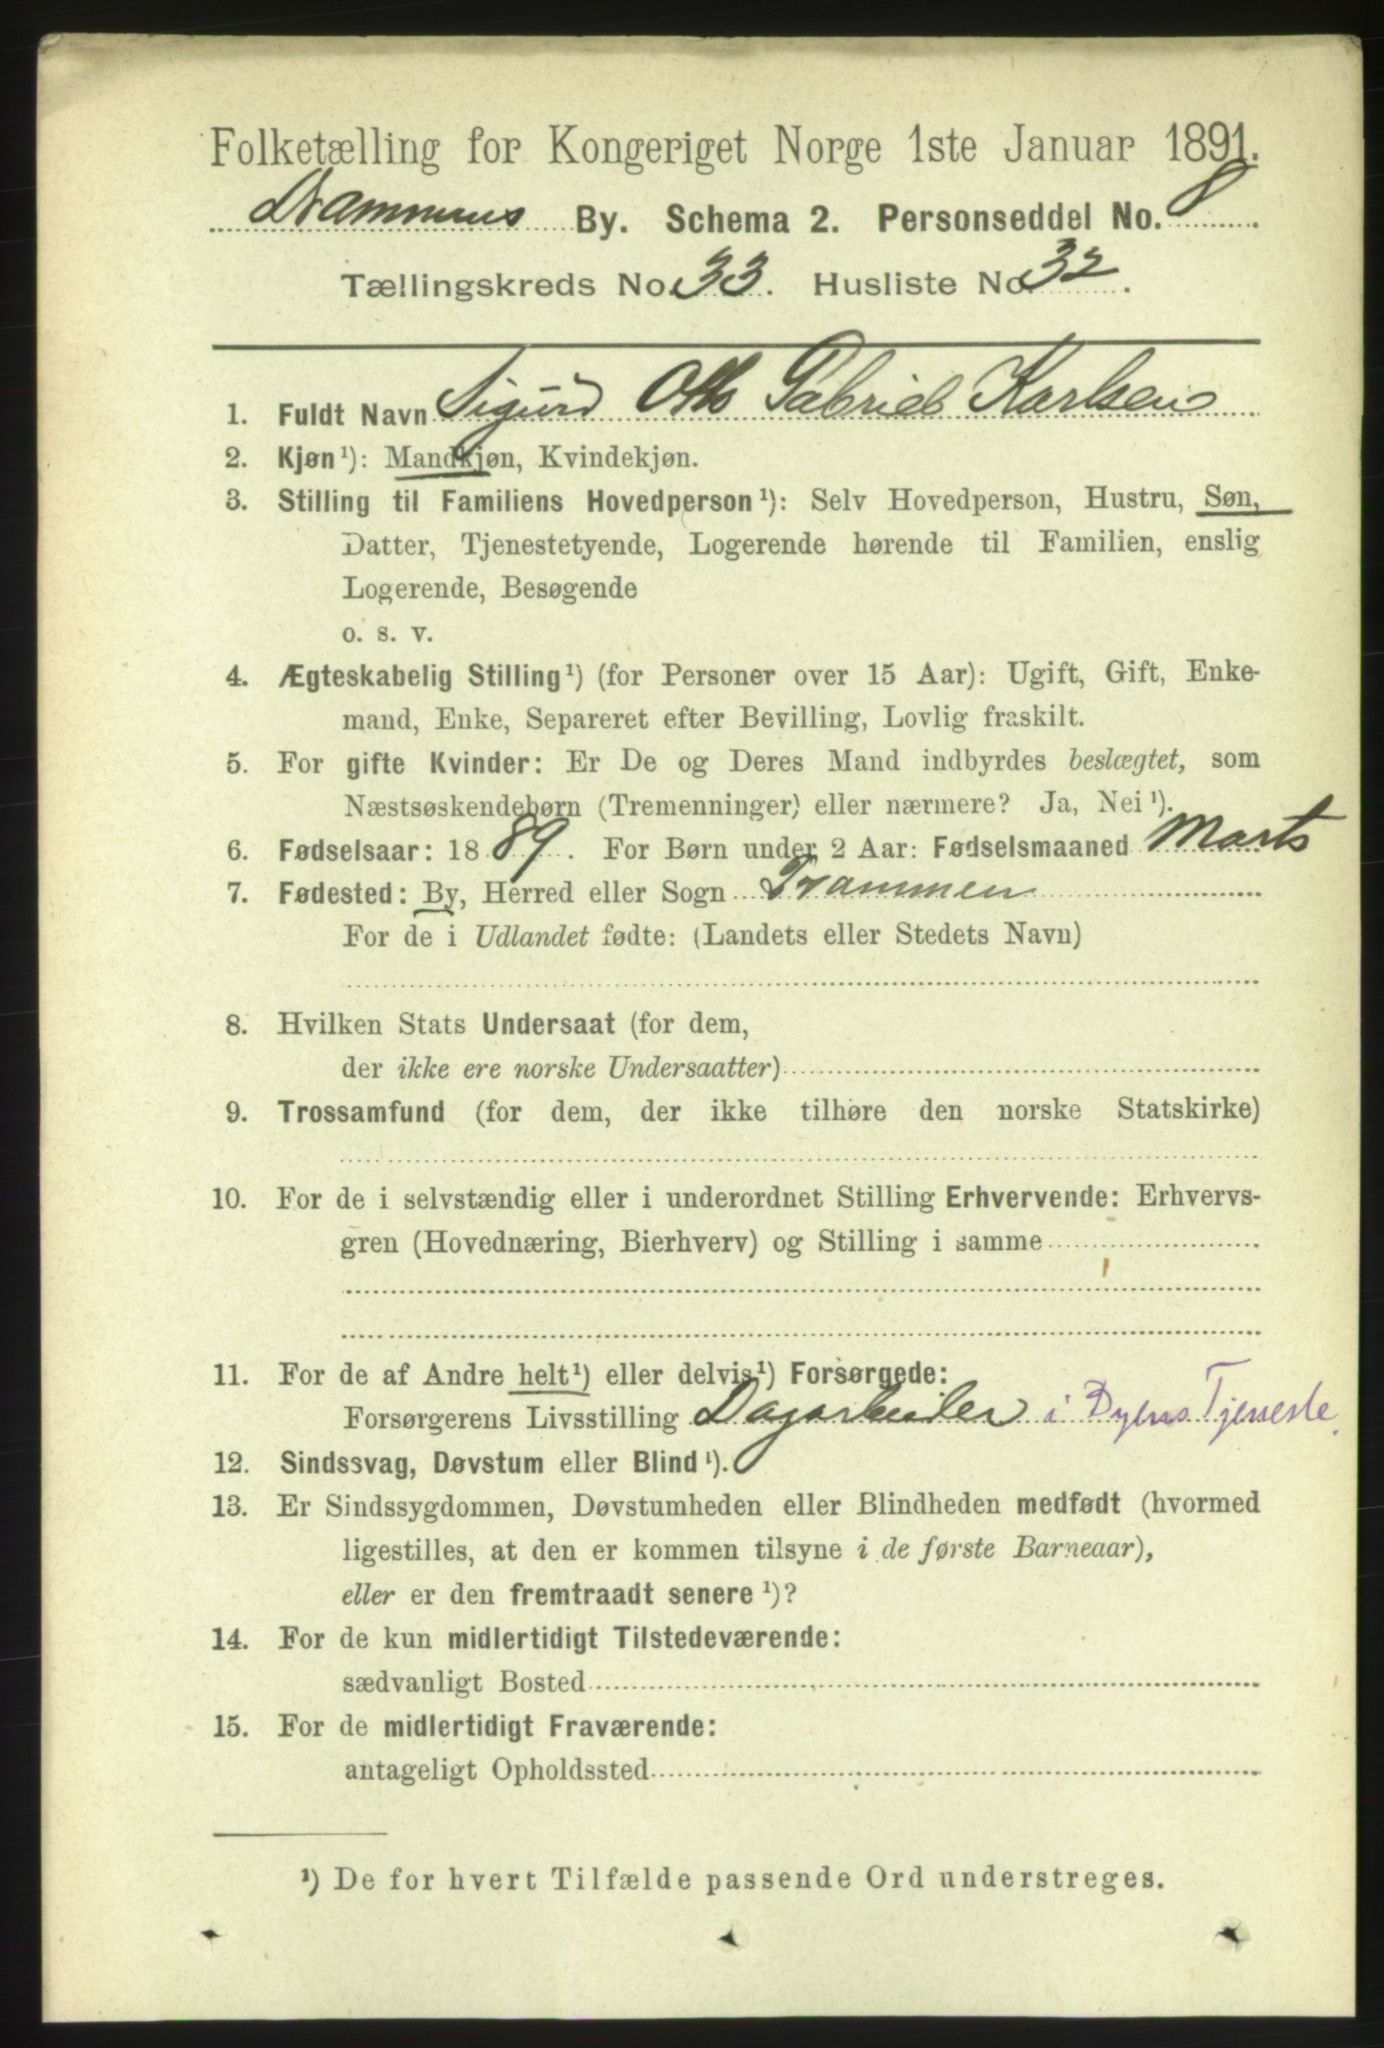 Folketælling for Kongeriget Norge 1ste Januar 1891.
Drammens By. Schema 2. Personseddel No. 8
Tællingskreds No. 33. Husliste No. 32.
1. Fuldt Navn Sigurd Otto Gabriel Karlsen
2. Kjøn¹): Mandkjøn, Kvindekjøn.
3. Stilling til Familiens Hovedperson¹): Selv Hovedperson, Hustru, Søn,
Datter, Tjenestetyende, Logerende hørende til Familien, enslig
Logerende, Besøgende
o. s. v.
4. Ægteskabelig Stilling¹) (for Personer over 15 Aar): Ugift, Gift, Enke-
mand, Enke, Separeret efter Bevilling, Lovlig fraskilt.
5. For gifte Kvinder: Er De og Deres Mand indbyrdes beslægtet, som
Næstsøskendebørn (Tremenninger) eller nærmere? Ja, Nei¹).
6. Fødselsaar: 1889. For Børn under 2 Aar: Fødselsmaaned Marts
7. Fødested: By, Herred eller Sogn Drammen
For de i Udlandet fødte: (Landets eller Stedets Navn)
8. Hvilken Stats Undersaat (for dem,
der ikke ere norske Undersaatter)
9. Trossamfund (for dem, der ikke tilhøre den norske Statskirke)
10. For de i selvstændig eller i underordnet Stilling Erhvervende: Erhvervs-
gren (Hovednæring, Bierhverv) og Stilling i samme
11. For de af Andre helt¹) eller delvis¹) Forsørgede:
Forsørgerens Livsstilling Dagarbeider i Byens Tjeneste.
12. Sindssvag, Døvstum eller Blind¹).
13. Er Sindssygdommen, Døvstumheden eller Blindheden medfødt (hvormed
ligestilles, at den er kommen tilsyne i de første Barneaar),
eller er den fremtraadt senere¹)?
14. For de kun midlertidigt Tilstedeværende:
sædvanligt Bosted
15. For de midlertidigt Fraværende:
antageligt Opholdssted
¹) De for hvert Tilfælde passende Ord understreges.